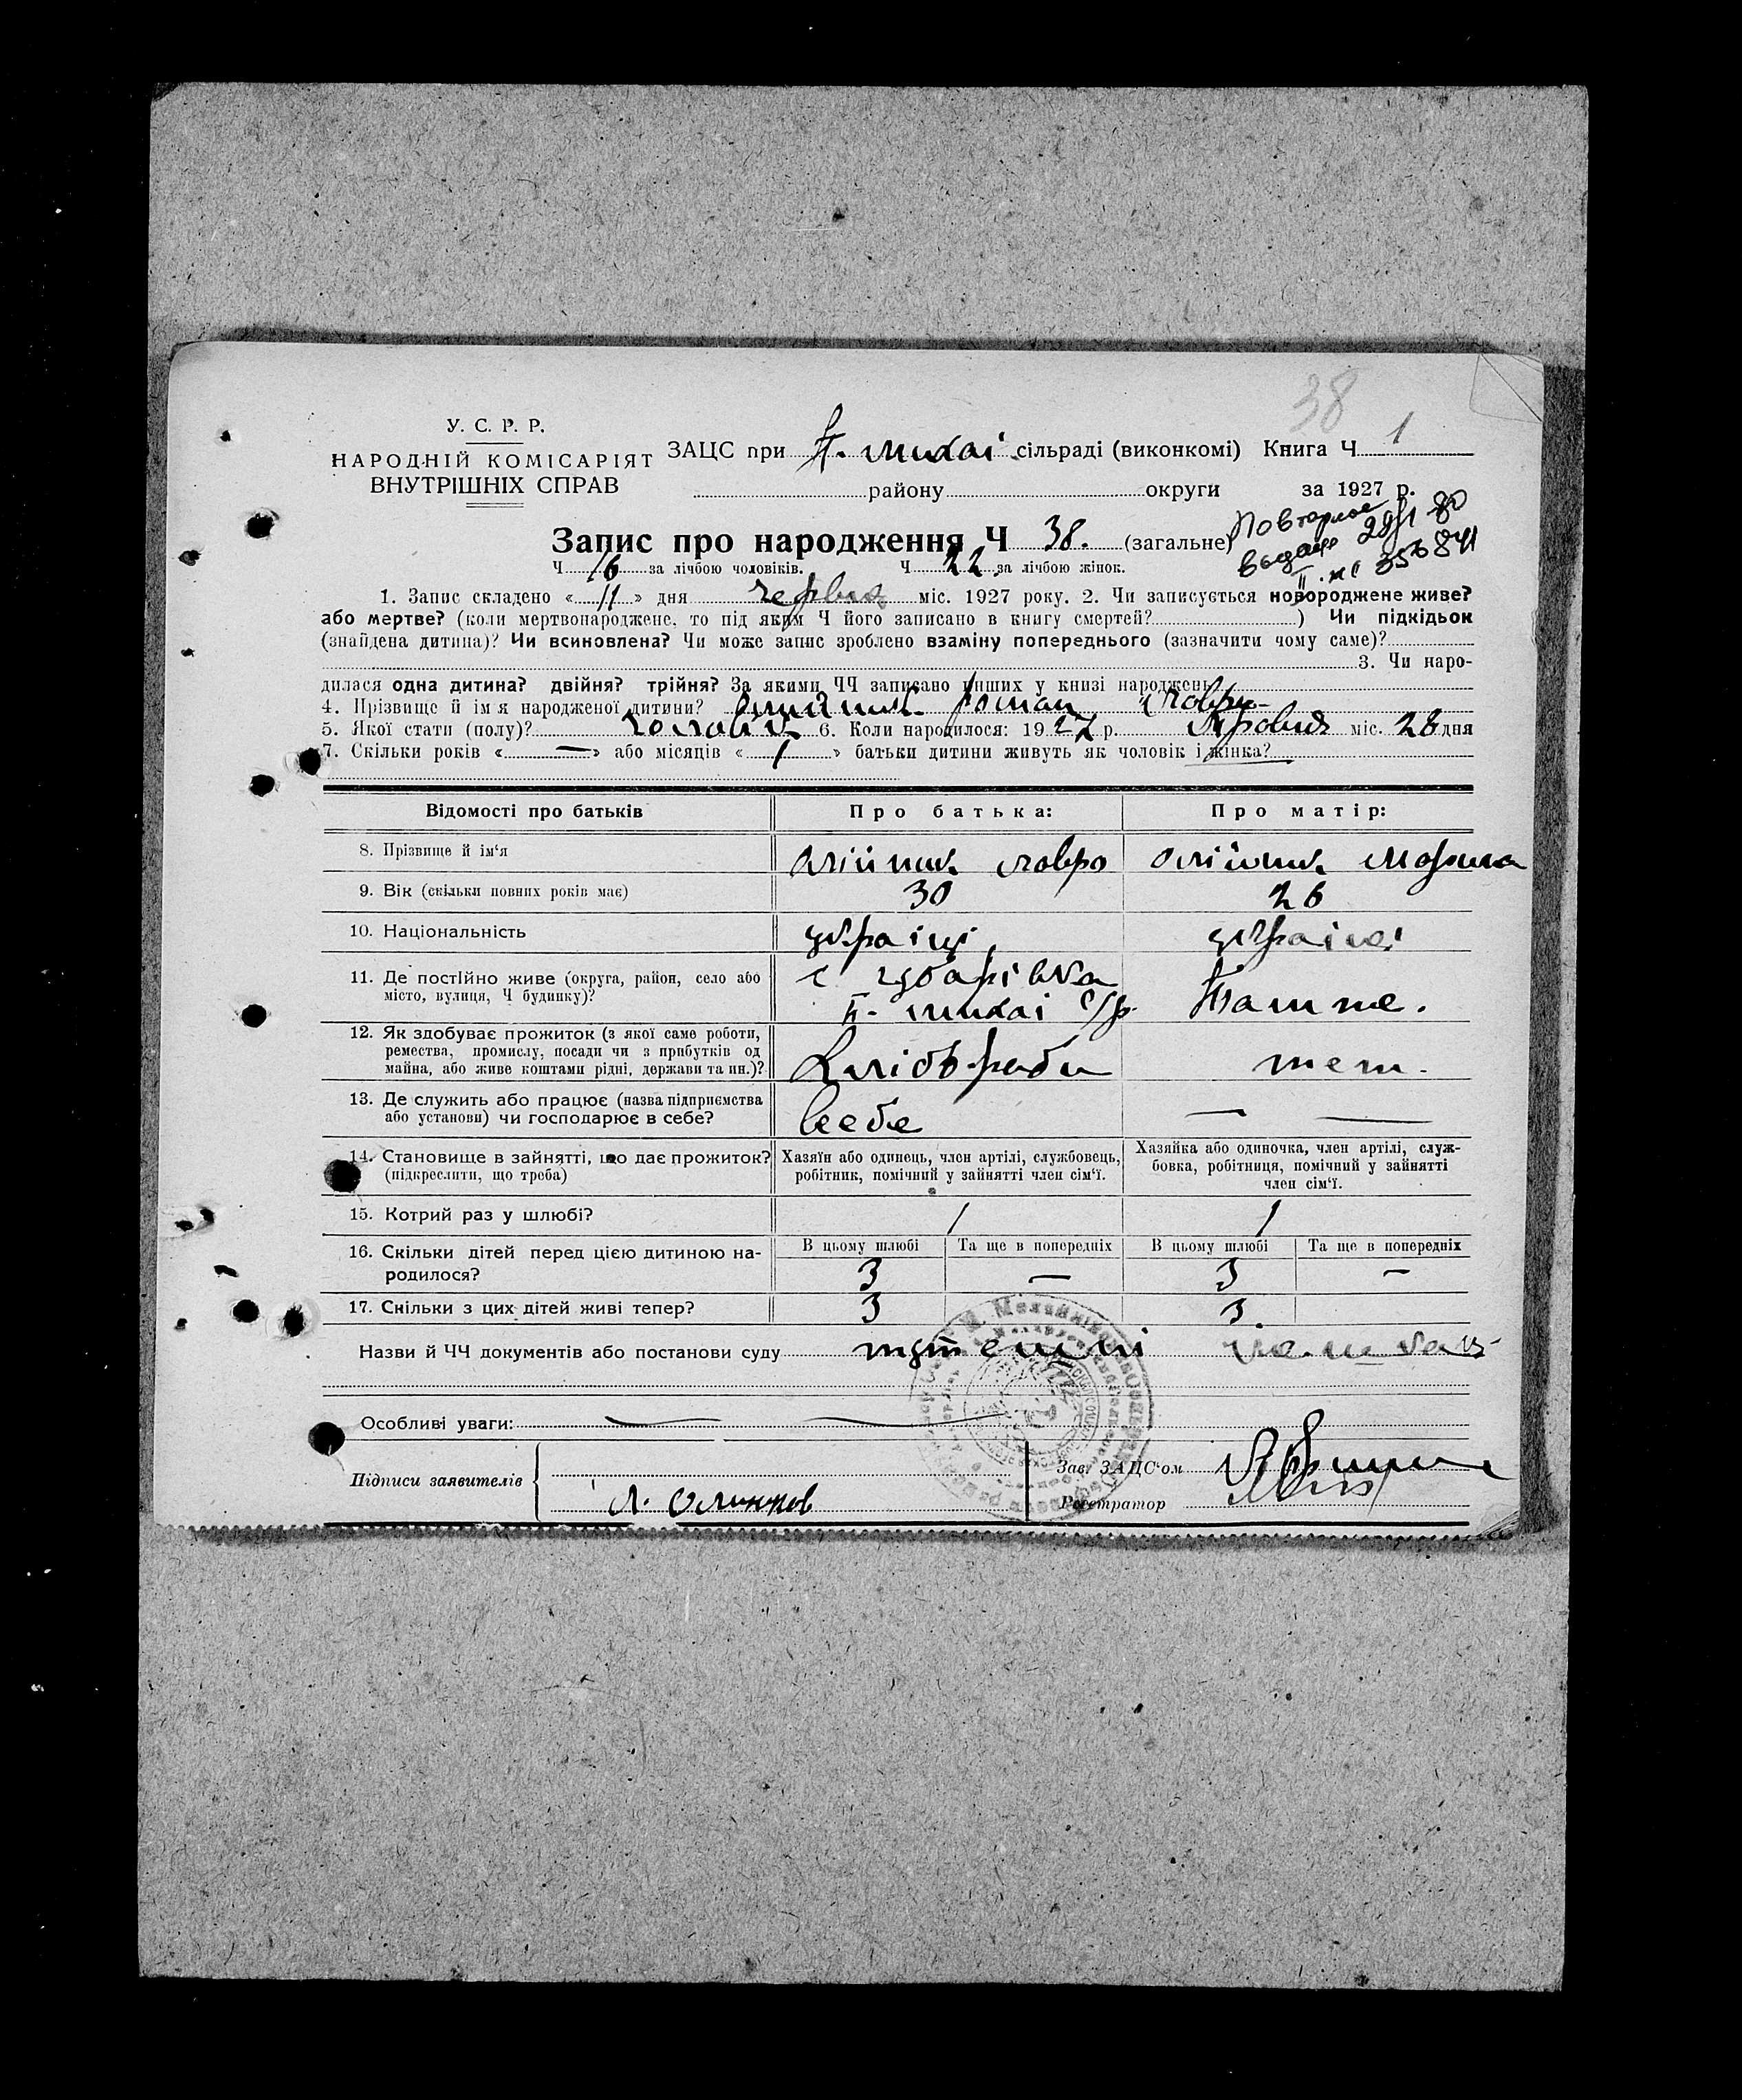 38
У. С. Р. Р.
НАРОДНІЙ КОМІСАРІЯТ
ВНУТРІШНІХ СПРАВ
ЗАЦС при сільраді (виконкомі) Книга Ч 1
району округи за 1927 р.
Повторное
Запис про народження Ч 38. (загальне)
Ч 16 за лічбою чоловіків. Ч 22. за лічбою жінок.
1. Запис складено « 11 » дня червня міс. 1927 року. 2. Чи записується новороджене живе?
або мертве? (коли мертвонароджене, то під яким Ч його записано в книгу смертей? ) Чи підкідьок
(знайдена дитина)? Чи всиновлена? Чи може запис зроблено взаміну попереднього (зазначити чому саме)?
3. Чи наро-
дилася одна дитина? двійня? трійня? За якими ЧЧ записано инших у книзі народжень
4. Прізвище й ім'я народженої дитини? Олійник Роман Лавро-
5. Якої стати (полу)? чоловік 6. Коли народилося: 1927 р. міс. 28 дня
7. Скільки років « — » або місяців « / » батьки дитини живуть як чоловік і жінка?
Відомості про батьків Про батька: Про матір:
8. Прізвище й ім'я Олійник Лавро Олійник Марина
9. Вік (скільки повних років має) 30 26
10. Національність україці україці
11. Де постійно живе (округа, район, село або
місто, вулиця, Ч будинку)? с С/р. Тамже.
12. Як здобуває прожиток (з якої саме роботи,
ремества, промислу, посади чи з прибутків од
майна, або живе коштами рідні, держави та ин.)? Хлібороби теж.
13. Де служить або працює (назва підприємства
або установи) чи господарює в себе? в себе — —
14. Становище в зайнятті, що дає прожиток?
(підкреслити, що треба)
Хазяїн або одинець, член артілі, службовець,
робітник, помічний у зайнятті член сім'ї.
Хазяйка або одиночка, член артілі, служ-
бовка, робітниця, помічний у зайнятті
член сім'ї.
15. Котрий раз у шлюбі? / /
В цьому шлюбі Та ще в попередніх В цьому шлюбі Та ще в попередніх
16. Скільки дітей перед цією дитиною на-
родилося? 3 — 3 —
17. Скільки з цих дітей живі тепер? 3 3.
Назви й ЧЧ документів або постанови суду
Особливі уваги: — —
Підписи заявителів
Зав. ЗАЦС'ом
Реєстратор